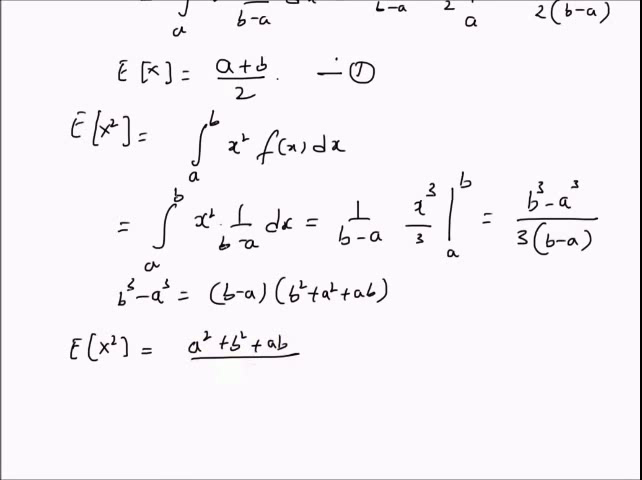 ∫ₐ b-a b-a 2 a 2(b-a)
E[x] = a+b/2. — ①
E[x²] = ∫ₐᵇ x² f(x) dx
= ∫ₐᵇ x² · 1/b-a dx = 1/b-a x³/3 |ₐᵇ = b³-a³/3(b-a)
b³-a³ = (b-a)(b²+a²+ab)
E[x²] = a²+b²+ab